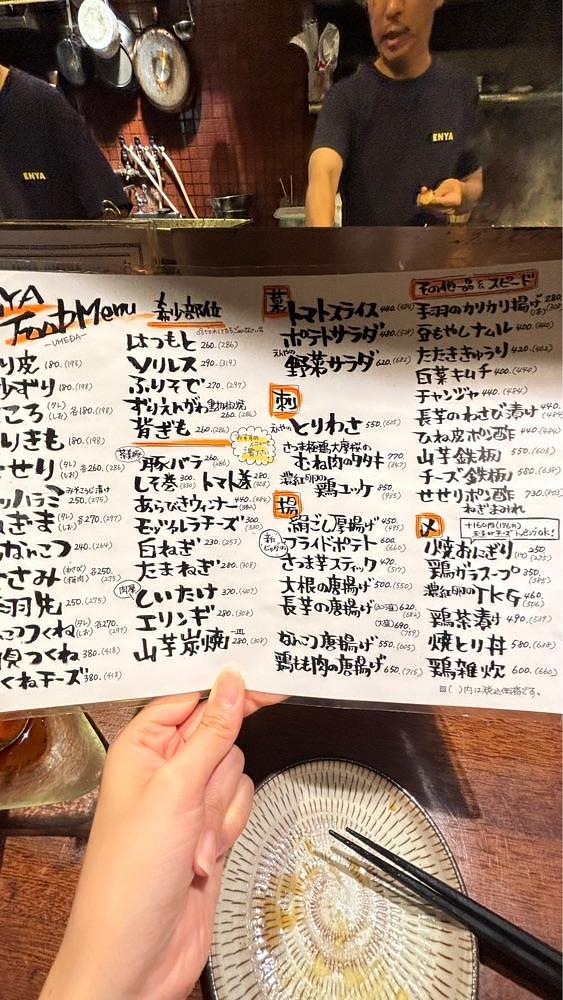 ENYA
ENYA
YA
Food Menu
-UMEDA-
り皮 180.(198)
少ずり 180.(198)
ころ (タレ)(しお) 各180.(198)
りきも 180.(198)
せせり (タレ)(しお) 各260.(286)
ハラミ みぞれこうじ漬け 250.(275)
ぎま (タレ)(しお) 各270.(297)
なんこつ 240.(264)
ささみ (わさび)(梅肉) 各250.(275)
羽先 250.(275)
こつつくね (タレ)(しお) 各270.(297)
つくね 380.(418)
くねチーズ 380.(418)
希少部位
はつもと 260.(286)
ソリレス 290.(319)
ふりそで 270.(297)
ずりえんがわ 黒胡椒焼 260.(286)
背ぎも 260.(286)
豚バラ 260.(286)
しそ巻 300. トマト巻 280.(308)
あらびきウィンナー 440.(484)
モッツァレラチーズ 300.(330)
白ねぎ 230.(253)
たまねぎ 280.(308)
肉厚 しいたけ 370.(407)
エリンギ 280.(308)
山芋炭焼 一皿 280.(308)
菜
トマトスライス 440.(484)
ポテトサラダ 480.(528)
えんやの 野菜サラダ 620.(682)
刺
えんやの とりわさ 550.(605)
さつま極鶏大摩桜の
むね肉のタタキ 770.(847)
濃紅卵の 鶏ユッケ 850.(935)
揚
絹ごし厚揚げ 450.(495)
フライドポテト 600.(660)
さつま芋スティック 470.(517)
大根の唐揚げ 500.(550)
長芋の唐揚げ (小3個) 620.(682)
(大5個) 690.(759)
なんこつ唐揚げ 550.(605)
鶏もも肉の唐揚げ 650.(715)
その他一品 & スピード
手羽のカリカリ揚げ 280.(308)
豆もやしナムル 400.(440)
たたききゅうり 420.(462)
白菜キムチ 400.(440)
チャンジャ 440.(484)
長芋のわさび漬け 440.(484)
ひね皮ポン酢 440.
山芋鉄板 580.(638)
チーズ鉄板 580.(638)
せせりポン酢 730.(803)
ねぎまみれ
〆
+160円(176円)
小焼おにぎり (1コ) 250.(275)
鶏ガラスープ 350.(385)
濃紅卵の TKG 460.(506)
鶏茶漬け 490.(539)
焼とり丼 580.(638)
鶏雑炊 600.(660)
※( )内は税込価格です。